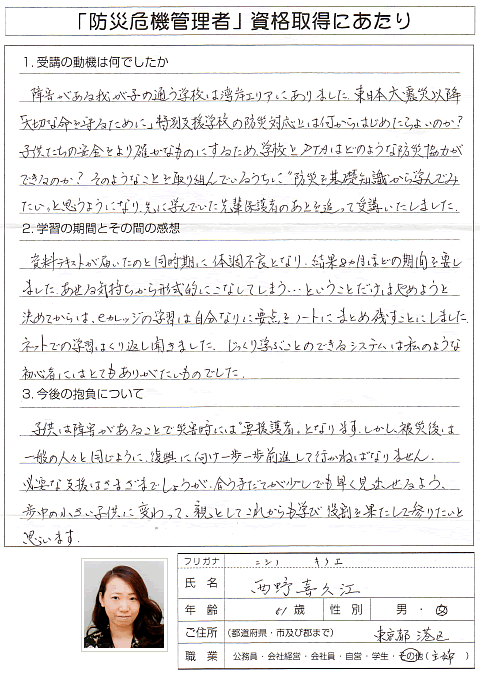 「防災危機管理者」資格取得にあたり
1.受講の動機は何でしたか
障害がある我が子の通う学校は湾岸エリアにありました.東日本大震災以降
「大切な命を守るために」特別支援学校の防災対応とは何からはじめたらよいのか?
子供たちの安全をより確かなものにするため,学校とPTAはどのような防災協力が
できるのか? そのようなことを取り組んでいるうちに"防災を基礎知識から学んでみ
たい"と思うようになり,先に学んでいた先輩保護者のあとを追って受講いたしました.
2.学習の期間とその間の感想
資料テキストが届いたのと同時期に体調不良となり,結果8ヵ月ほどの期間を要し
ました.あせる気持ちから形式的にこなしてしまう…ということだけはやめようと
決めてからは、eカレッジの学習は自分なりに要点をノートにまとめ残すことにしました.
ネットでの学習はくり返し聞きました. じっくり学ぶことのできるシステムは私のような
初心者にはとてもありがたいものでした.
3.今後の抱負について
子供は障害があることで災害時には"要援護者"となります.しかし、被災後は
一般の人々と同じように、復興に向け一歩一歩前進して行かねばなりません.
必要な支援はさまざまでしょうが、合う手だてが少しでも早く見出せるよう、
歩中の小さい子供に変わって、親としてこれからも学び役割を果たして参りたいと
思います.
フリガナ ニシノ キクエ
氏名 西野喜久江
年齢 51歳 性別 男・女
ご住所 (都道府県・市及び郡まで) 東京都港区
職業 公務員・会社経営・会社員・自営・学生・その他(主婦)